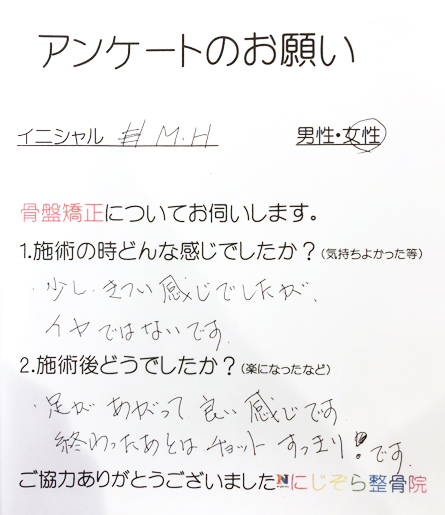 アンケートのお願い
イニシャル M.H 男性・女性
骨盤矯正についてお伺いします。
1.施術の時どんな感じでしたか？(気持ちよかった等)
・少しきつい感じでしたが、
イヤではないです。
2.施術後どうでしたか？(楽になったなど)
・足があがって良い感じです
終わったあとはチョットすっきり!です。
ご協力ありがとうございました にじぞら整骨院